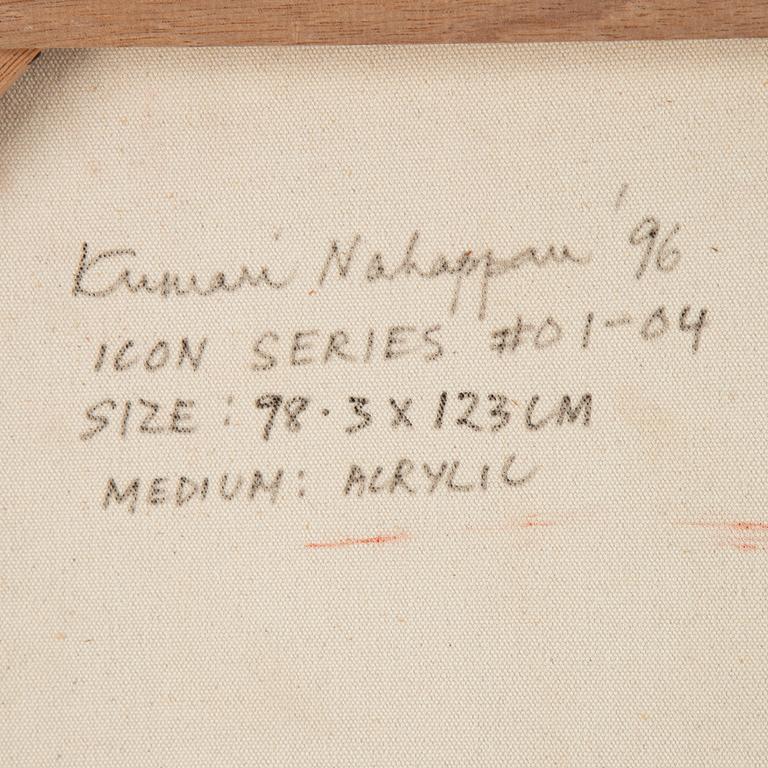 Kumari Nahappan '96
ICON SERIES #01-04
SIZE: 98.3 X 123 CM
MEDIUM: ACRYLIC